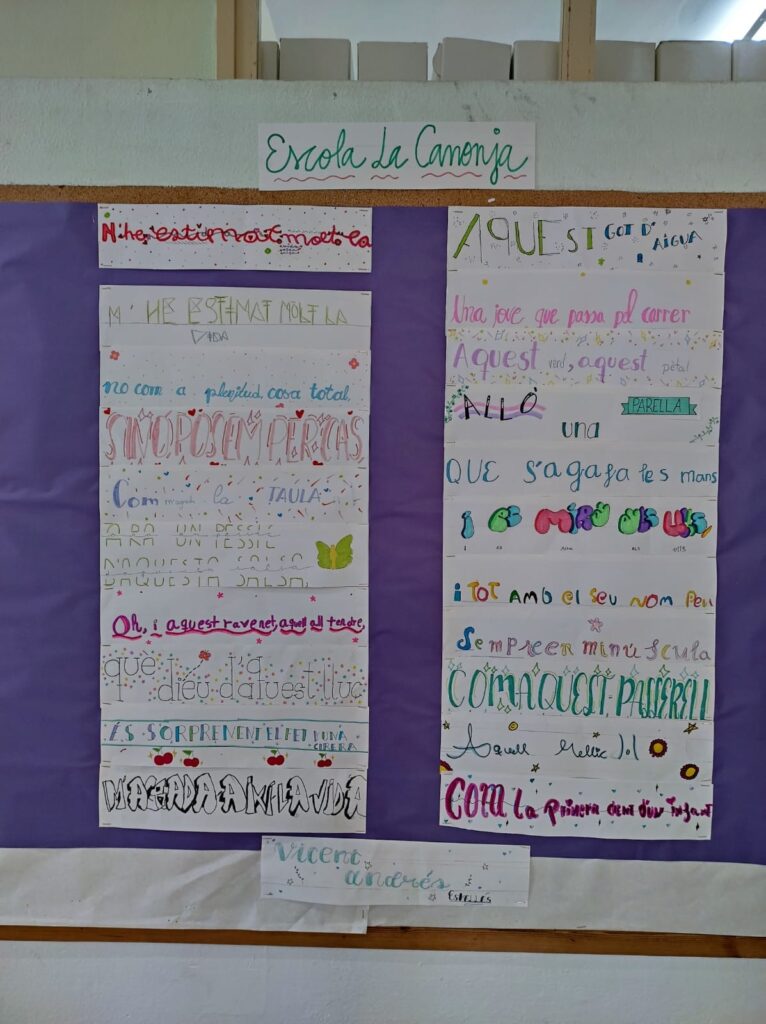 Escola La Canonja
M'he estimat molt la
M' HE ESTIMAT MOLT LA
VIDA
no com a plenitud, cosa total,
SINO POSEM PER CAS,
Com m'agrada la TAULA
ARA UN PESSIC
D'AQUESTA SALSA,
Oh, i aquest ravenet, aquell all tendre,
què dieu d'aquest lluç
ÉS SORPRENENT EL FET D'UNA
CIRERA
M'AGRADA AIXI LA VIDA
AQUEST GOT D'
AIGUA
Una jove que passa pel carrer
Aquest verd, aquest pètal
ALLÒ
una
PARELLA
QUE s'agafa les mans
i es mira als ulls,
i es mira als ulls
i TOT AMB el seu nom feu
Sempre en minúscula
COM AQUEST PASSERELL
Aquell Melic
COM la primera dent d'un infant
Vicent
andrés
Estellés